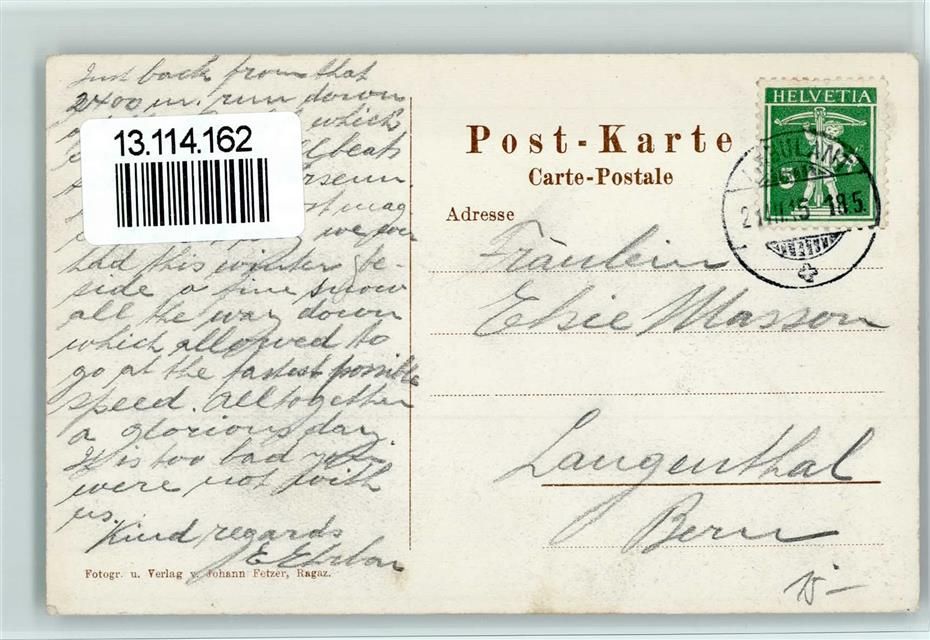 Just back from that
2400 m. run down
which
beats
13.114.162
we ever
had this winter be-
side a fine snow
all the way down
which allowed to
go at the fastest possible
speed. Alltogether
a glorious day.
It is too bad you
were not with
us.
Kind regards
Fotogr. u. Verlag v. Johann Fetzer, Ragaz.
Post-Karte
Carte-Postale
Adresse
Fräulein
Elsie Masson
Langenthal
Bern
HELVETIA
5